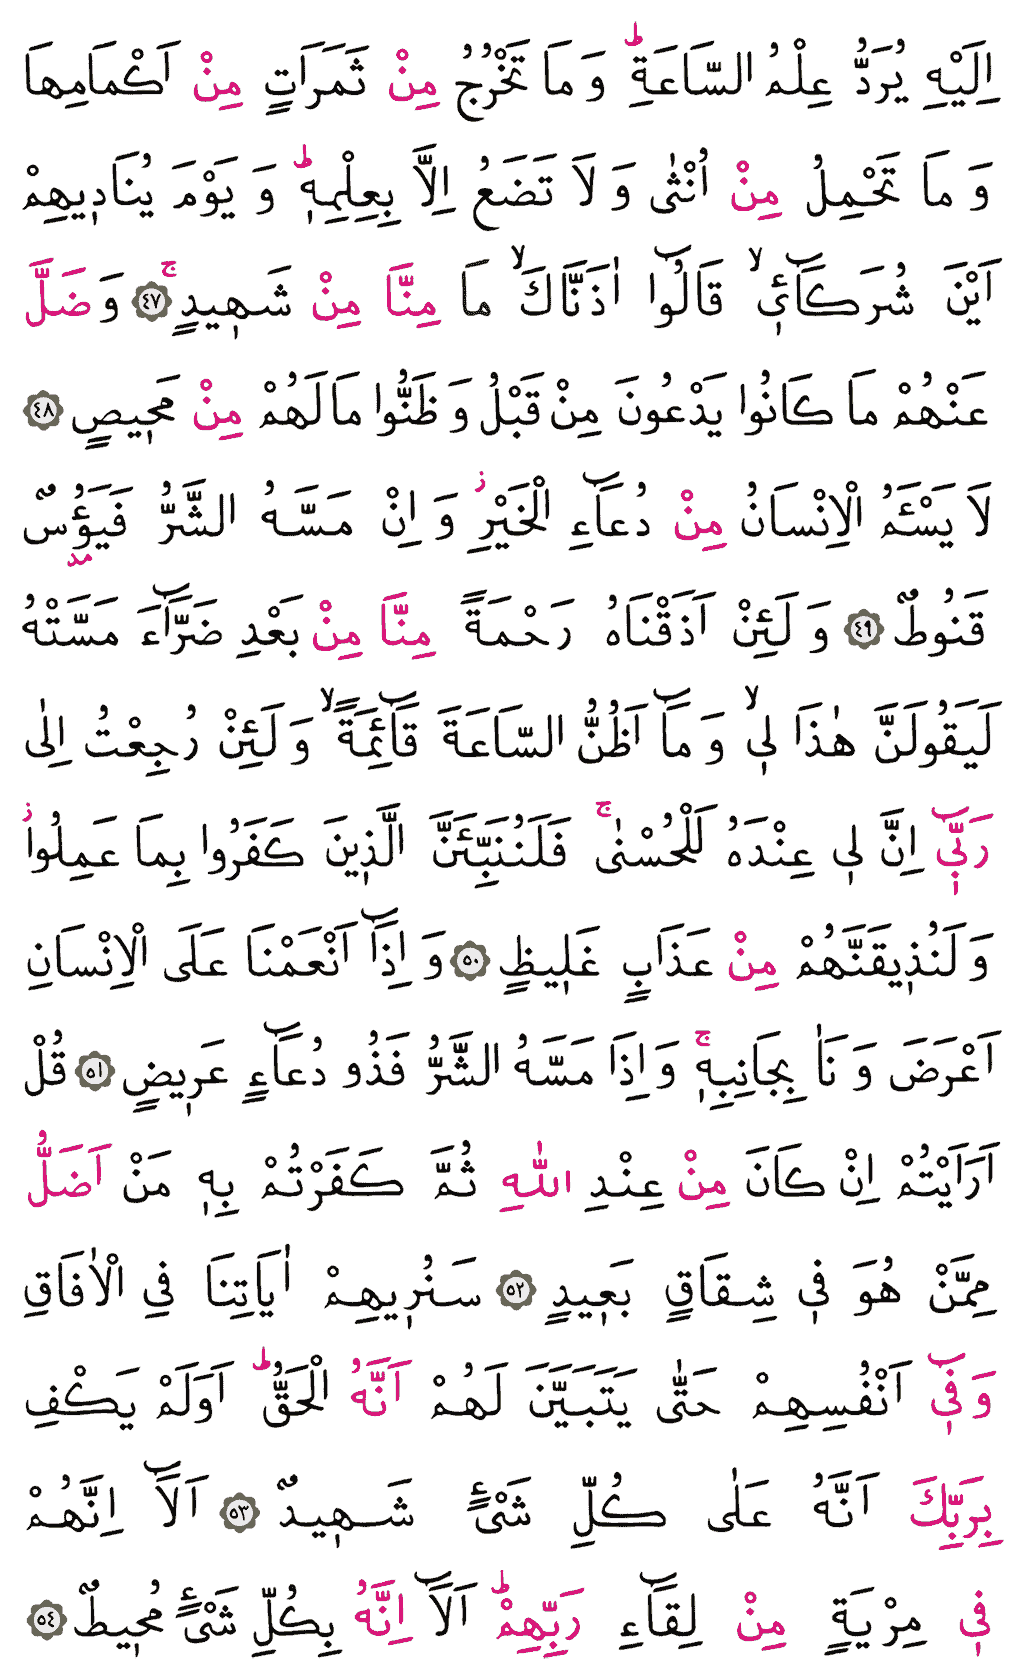 اِلَيْهِ يُرَدُّ عِلْمُ السَّاعَةِۜ وَمَا تَخْرُجُ مِنْ ثَمَرَاتٍ مِنْ اَكْمَامِهَا
وَمَا تَحْمِلُ مِنْ اُنْثٰى وَلَا تَضَعُ اِلَّا بِعِلْمِه۪ۜ وَيَوْمَ يُنَاد۪يهِمْ
اَيْنَ شُرَكَٓاء۪يۙ قَالُٓوا اٰذَنَّاكَۙ مَا مِنَّا مِنْ شَه۪يدٍۚ ﴿٤٧﴾ وَضَلَّ
عَنْهُمْ مَا كَانُوا يَدْعُونَ مِنْ قَبْلُ وَظَنُّوا مَا لَهُمْ مِنْ مَح۪يصٍ ﴿٤٨﴾
لَا يَسْـَٔمُ الْاِنْسَانُ مِنْ دُعَٓاءِ الْخَيْرِۘ وَاِنْ مَسَّهُ الشَّرُّ فَيَؤُ۫سٌ
قَنُوطٌ ﴿٤٩﴾ وَلَئِنْ اَذَقْنَاهُ رَحْمَةً مِنَّا مِنْ بَعْدِ ضَرَّٓاءَ مَسَّتْهُ
لَيَقُولَنَّ هٰذَا ل۪يۙ وَمَٓا اَظُنُّ السَّاعَةَ قَٓائِمَةًۙ وَلَئِنْ رُجِعْتُ اِلٰى
رَبّ۪ٓي اِنَّ ل۪ي عِنْدَهُ لَلْحُسْنٰىۚ فَلَنُنَبِّئَنَّ الَّذ۪ينَ كَفَرُوا بِمَا عَمِلُواۘ
وَلَنُذ۪يقَنَّهُمْ مِنْ عَذَابٍ غَل۪يظٍ ﴿٥٠﴾ وَاِذَٓا اَنْعَمْنَا عَلَى الْاِنْسَانِ
اَعْرَضَ وَنَاٰ بِجَانِبِه۪ۚ وَاِذَا مَسَّهُ الشَّرُّ فَذُو دُعَٓاءٍ عَر۪يضٍ ﴿٥١﴾ قُلْ
اَرَاَيْتُمْ اِنْ كَانَ مِنْ عِنْدِ اللّٰهِ ثُمَّ كَفَرْتُمْ بِه۪ مَنْ اَضَلُّ
مِمَّنْ هُوَ ف۪ي شِقَاقٍ بَع۪يدٍ ﴿٥٢﴾ سَنُر۪يهِمْ اٰيَاتِنَا فِي الْاٰفَاقِ
وَف۪ٓي اَنْفُسِهِمْ حَتّٰى يَتَبَيَّنَ لَهُمْ اَنَّهُ الْحَقُّۜ اَوَلَمْ يَكْفِ
بِرَبِّكَ اَنَّهُ عَلٰى كُلِّ شَيْءٍ شَه۪يدٌ ﴿٥٣﴾ اَلَٓا اِنَّهُمْ
ف۪ي مِرْيَةٍ مِنْ لِقَٓاءِ رَبِّهِمْۜ اَلَٓا اِنَّهُ بِكُلِّ شَيْءٍ مُح۪يطٌ ﴿٥٤﴾